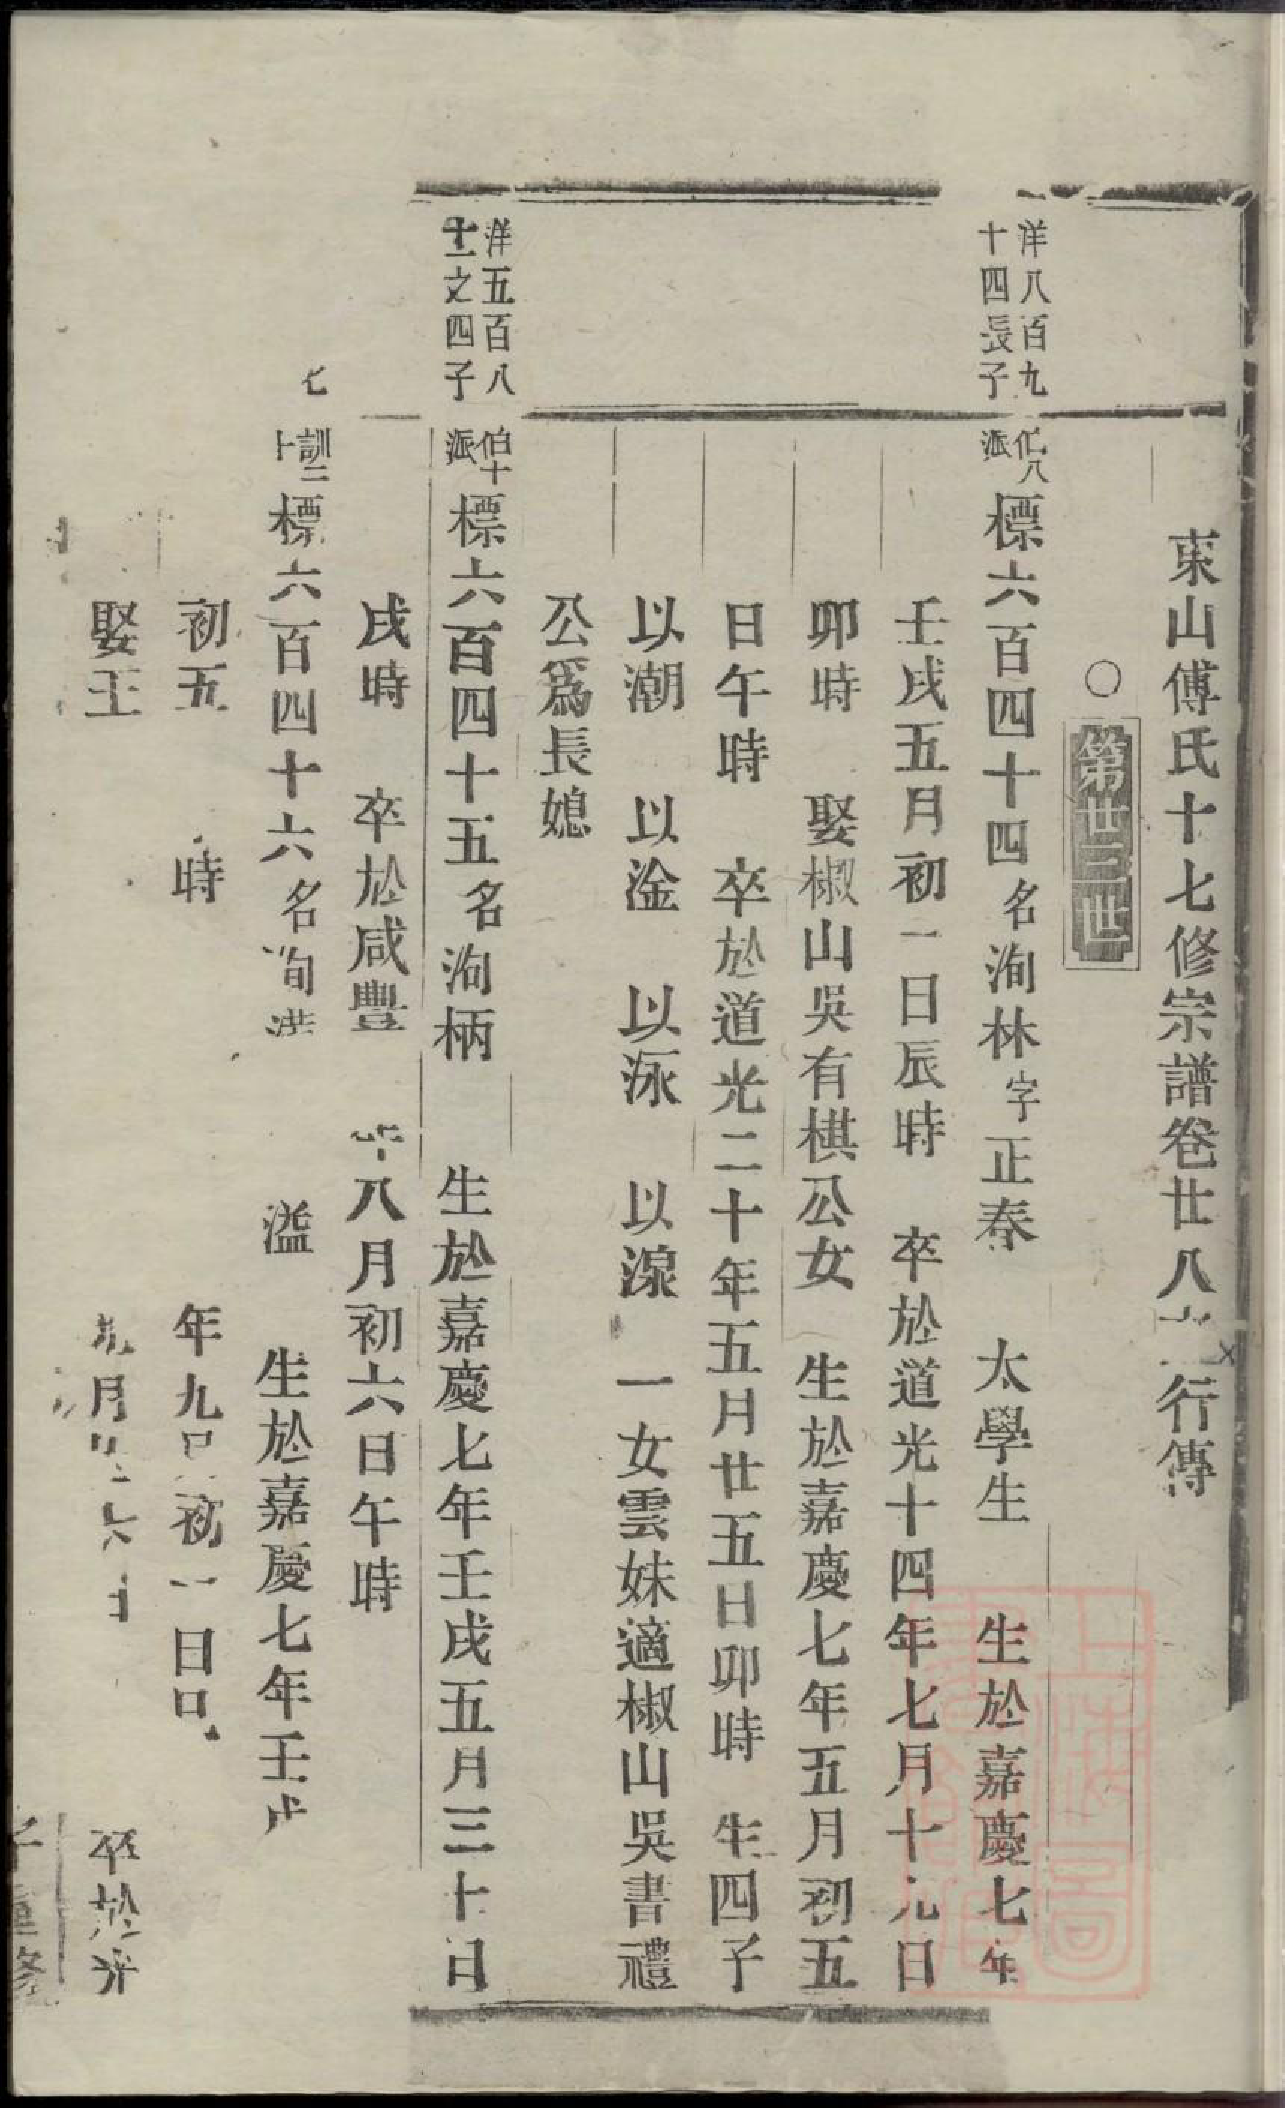 東山傅氏十七修宗譜卷廿八 行傳
○第卅三世
洋八百九
十四長子
八
派
標六百四十四名洵林字正春 太學生 生於嘉慶七年
壬戌五月初一日辰時 卒於道光十四年七月十九日
卯時 娶椒山吳有棋公女 生於嘉慶七年五月初五
日午時 卒於道光二十年五月廿五日卯時 生四子
以潮 以淦 以泳 以湶 一女雲妹適椒山吳書禮
公爲長媳
洋五百八
十一之四子
伯十
派
標六百四十五名洵柄 生於嘉慶七年壬戌五月三十日
戌時 卒於咸豐 年八月初六日午時
七
訓二
標六百四十六名洵洪 溢 生於嘉慶七年壬戌
初五 時 年九 初一日
娶王 月 日 卒於
子 重修
上海圖書館藏